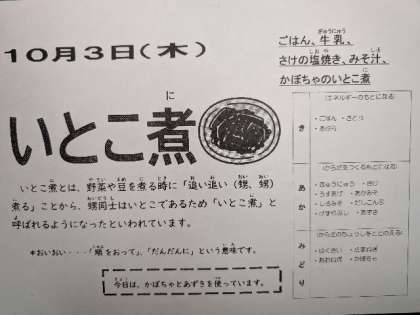 10月3日(木)
ごはん、牛乳、
さけの塩焼き、みそ汁、
かぼちゃのいとこ煮
いとこ煮
いとこ煮とは、野菜や豆を煮る時に「追い追い(甥、甥)
煮る」ことから、甥同士はいとこであるため「いとこ煮」と
呼ばれるようになったといわれています。
*おいおい・・・「順をおって」、「だんだんに」という意味です。
今日は、かぼちゃとあずきを使っています。
き
(エネルギーのもとになる)
・ごはん ・さとう
・あぶら
あか
(からだをつくるもとになる)
・ぎゅうにゅう ・さけ
・うすあげ ・あかみそ
・しろみそ ・だしこんぶ
・けずりぶし ・あずき
みどり
(からだのちょうしをととのえる)
・はくさい ・たまねぎ
・あおねぎ ・かぼちゃ